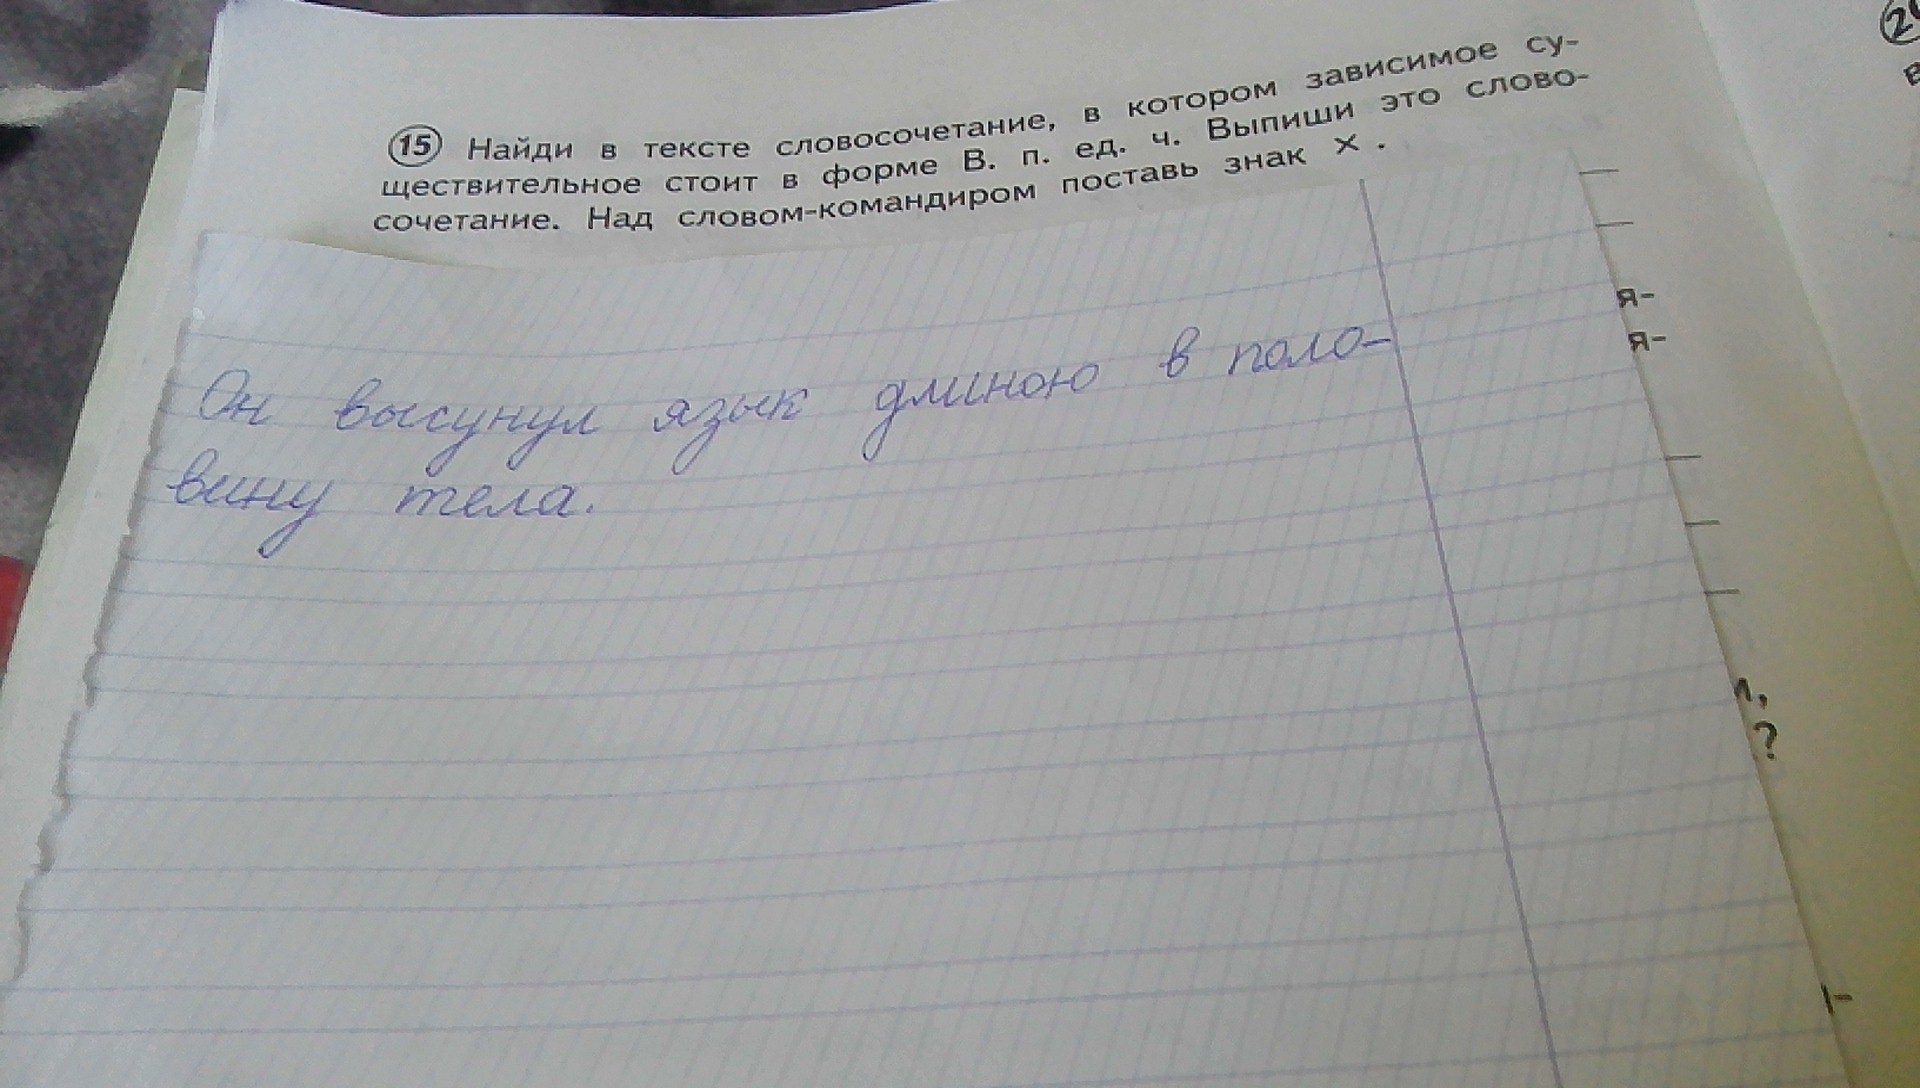 15 Найди в тексте словосочетание, в котором зависимое су-
ществительное стоит в форме В. п. ед. ч. Выпиши это слово-
сочетание. Над словом-командиром поставь знак × .
я-
я-
Он высунул язык длиною в поло-
вину тела.
?